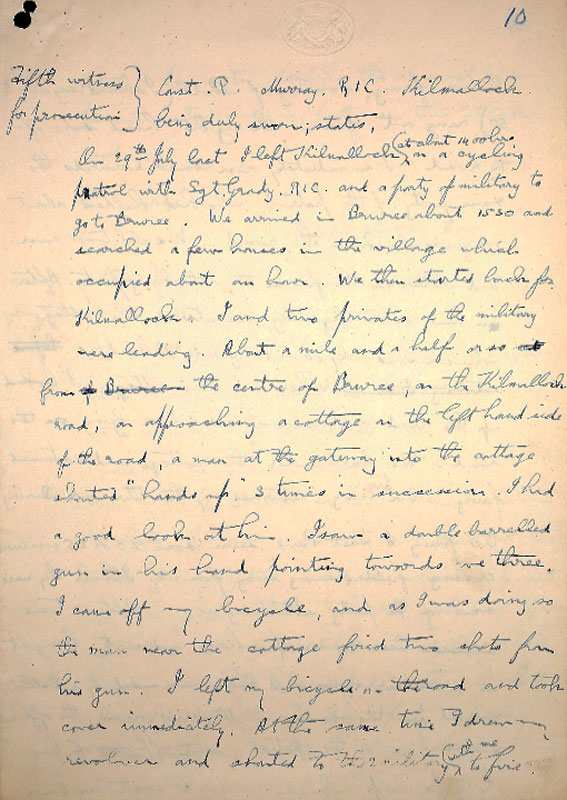 10
Fifth witness for prosecution } Const. P. Murray. RIC. Kilmallock
being duly sworn; states,
On 29th July last I left Kilmallock (at about 1400 hrs) on a cycling
patrol with Sgt. Grady. RIC. and a party of military to
go to Bruree. We arrived in Bruree about 1530 and
searched a few houses in the village which
occupied about an hour. We then started back for
Kilmallock. I and two privates of the military
were leading. About a mile and a half or so
from Bruree the centre of Bruree, on the Kilmallock
road, on approaching a cottage on the left hand side
of the road, a man at the gateway into the cottage
shouted "hands up" 3 times in succession. I had
a good look at him. I saw a double barrelled
gun in his hand pointing towards we three.
I came off my bicycle, and as I was doing so
the man near the cottage fired two shots from
his gun. I left my bicycle on the road and took
cover immediately. At the same time I drew my
revolver and shouted to the 2 military (with me) to fire.